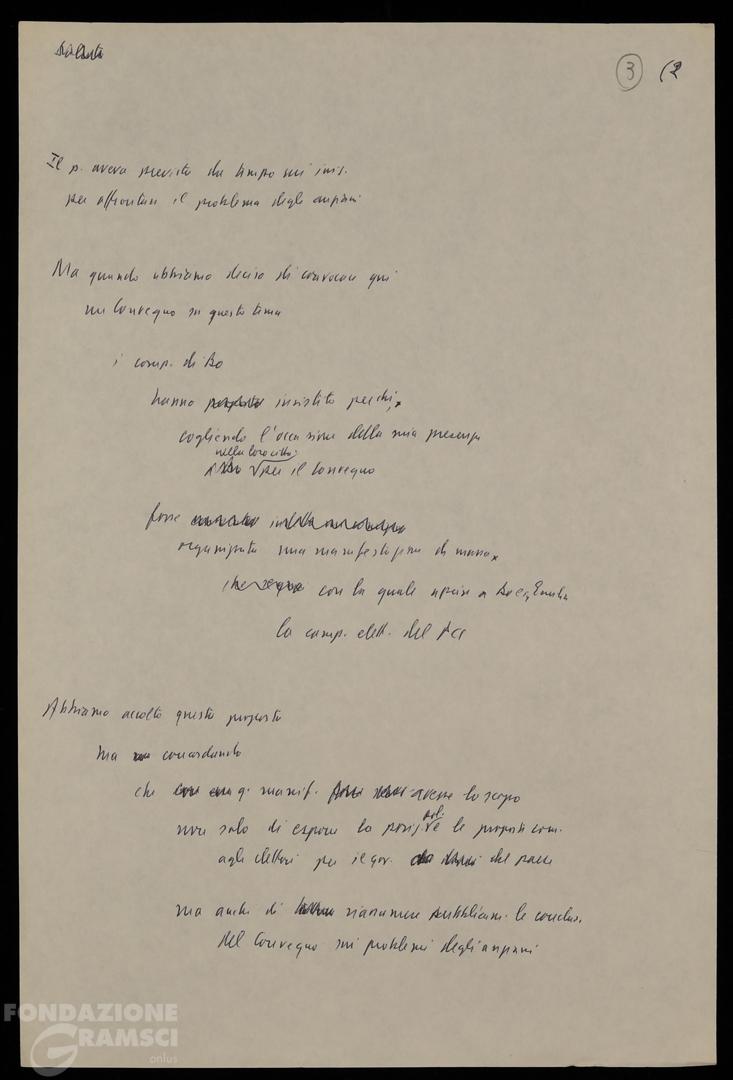 3 (2
Il p. aveva previsto da tempo un' iniz.
per affrontare il problema degli anziani
Ma quando abbiamo deciso di convocare qui
un Convegno su questo tema
i comp. di Bo
hanno insistito perché,
cogliendo l'occasione della mia presenza
nella loro città
per il Convegno
fosse
organizzata una manifestazione di massa
con la quale aprire a Bo e in Emilia
la camp. elett. del PCI
Abbiamo accolto questa proposta
ma concordando
che q. manif. avesse lo scopo
non solo di esporre la posiz. pol. e le proposte com.
agli elettori per il gov. del paese
ma anche di riassumere pubblicam. le conclus.
del Convegno sui problemi degli anziani
FONDAZIONE
GRAMSCI
onlus